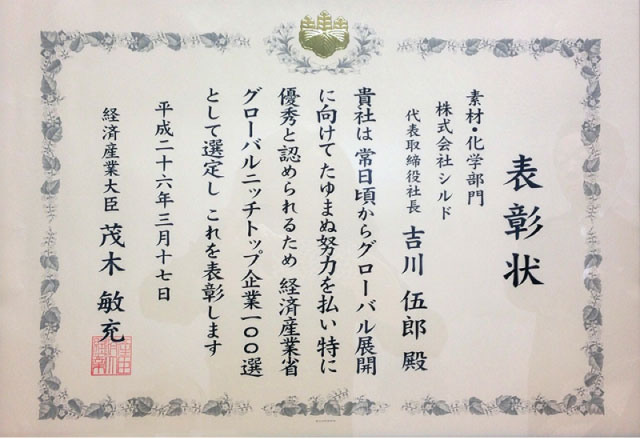 表彰状
素材・化学部門
株式会社シルド
代表取締役社長 吉川 伍郎 殿
貴社は 常日頃からグローバル展開
に向けてたゆまぬ努力を払い 特に
優秀と認められるため 経済産業省
グローバルニッチトップ企業一〇〇選
として選定し これを表彰します
平成二十六年三月十七日
経済産業大臣 茂木 敏充